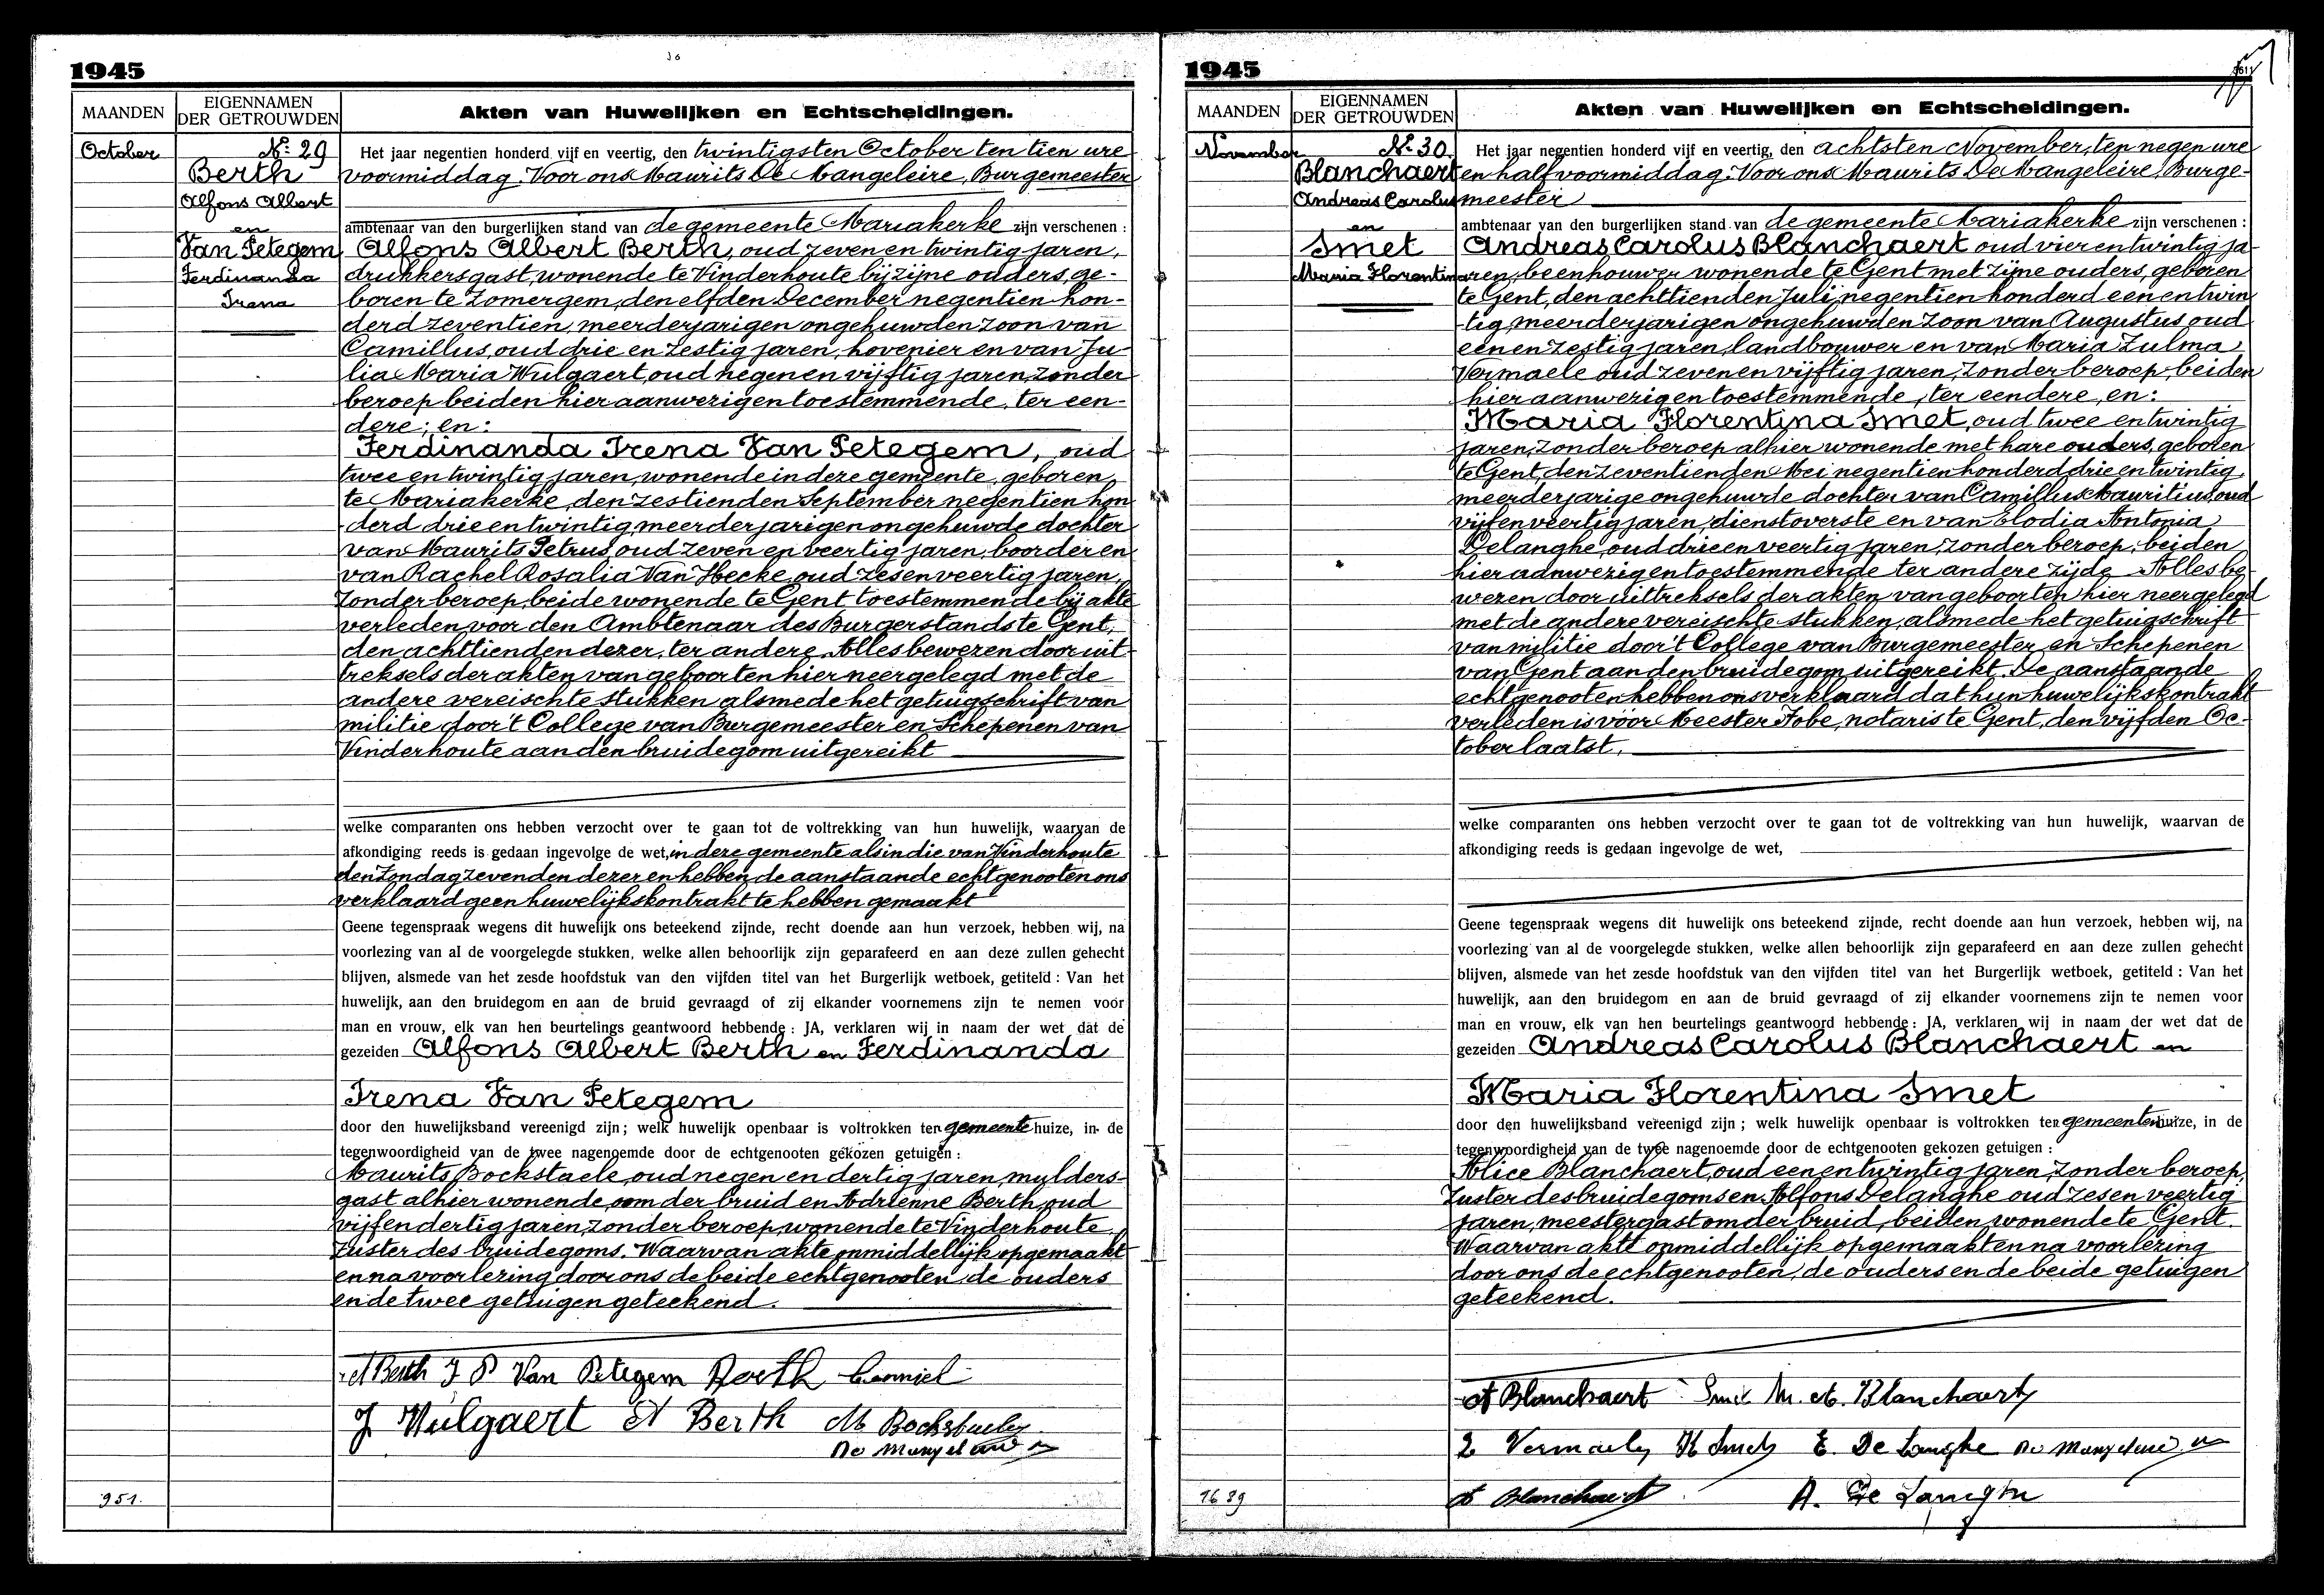 1945
MAANDEN
EIGENNAMEN
DER GETROUWDEN
Akten van Huwelijken en Echtscheidingen.
October
Nr. 29
Berth
Alfons Albert
en
Van Petegem
Ferdinanda
Irena
Het jaar negentien honderd vijf en veertig, den twintigsten October ten tien ure
voormiddag. Voor ons Maurits De Mangeleire, Burgemeester
ambtenaar van den burgerlijken stand van de gemeente Mariakerke zijn verschenen :
Alfons Albert Berth, oud zeven en twintig jaren,
drukkersgast, wonende te Vinderhoute bij zijne ouders, ge-
boren te Zomergem, den elfden December negentien hon-
derd zeventien, meerderjarigen ongehuwden zoon van
Camillus, oud drie en zestig jaren, hovenier en van Ju-
lia Maria Wulgaert, oud negen en vijftig jaren, zonder
beroep beiden hier aanwezig en toestemmende, ter een-
dere; en:
Ferdinanda Irena Van Petegem, oud
twee en twintig jaren, wonende in deze gemeente, geboren
te Mariakerke, den zestienden September negentien hon
derd drie en twintig, meerderjarigen ongehuwde dochter
van Maurits Petrus, oud zeven en veertig jaren, boorder en
van Rachel Rosalia Van Hecke, oud zes en veertig jaren,
zonder beroep, beide wonende te Gent toestemmende bij akte
verleden voor den Ambtenaar des Burgerstands te Gent,
den achttienden dezer, ter andere. Alles bewezen door uit
treksels der akten van geboorten hier neergelegd met de
andere vereischte stukken alsmede het getuigschrift van
militie door't College van Burgemeester en Schepenen van
Vinderhoute aan den bruidegom uitgereikt
welke comparanten ons hebben verzocht over te gaan tot de voltrekking van hun huwelijk, waarvan de
afkondiging reeds is gedaan ingevolge de wet, in deze gemeente als in die van Vinderhoute
den Zondag zevenden dezer en hebben de aanstaande echtgenooten ons
verklaard geen huwelijkskontrakt te hebben gemaakt
Geene tegenspraak wegens dit huwelijk ons beteekend zijnde, recht doende aan hun verzoek, hebben wij, na
voorlezing van al de voorgelegde stukken, welke allen behoorlijk zijn geparafeerd en aan deze zullen gehecht
blijven, alsmede van het zesde hoofdstuk van den vijfden titel van het Burgerlijk wetboek, getiteld : Van het
huwelijk, aan den bruidegom en aan de bruid gevraagd of zij elkander voornemens zijn te nemen voor
man en vrouw, elk van hen beurtelings geantwoord hebbende : JA, verklaren wij in naam der wet dat de
gezeiden Alfons Albert Berth en Ferdinanda
Irena Van Petegem
door den huwelijksband vereenigd zijn ; welk huwelijk openbaar is voltrokken ten gemeente huize, in de
tegenwoordigheid van de twee nagenoemde door de echtgenooten gekozen getuigen :
Maurits Bockstaele, oud negen en dertig jaren, mylders-
gast alhier wonende, oom der bruid en Adrienne Berth, oud
vijf en dertig jaren, zonder beroep, wonende te Vinderhoute
zuster des bruidegoms. Waarvan akte onmiddellijk opgemaakt
en na voorlezing door ons de beide echtgenooten de ouders
en de twee getuigen geteekend.
A Berth J P Van Petegem Berth Camiel
J Wulgaert A Berth M Bockstaele
De Mangeleire
951.
1945
MAANDEN
EIGENNAMEN
DER GETROUWDEN
Akten van Huwelijken en Echtscheidingen.
November
Nr. 30
Blanchaert
Andreas Carolus
en
Smet
Maria Florentina
Het jaar negentien honderd vijf en veertig, den achtsten November, ten negen ure
en half voormiddag. Voor ons Maurits De Mangeleire, Burge-
meester
ambtenaar van den burgerlijken stand van de gemeente Mariakerke zijn verschenen :
Andreas Carolus Blanchaert oud vier en twintig ja-
ren, beenhouwer wonende te Gent met zijne ouders, geboren
te Gent, den achttienden Juli negentien honderd een en twin
tig, meerderjarigen ongehuwden zoon van Augustus oud
een en zestig jaren, landbouwer en van Maria Zulma
Vermaele oud zeven en vijftig jaren, zonder beroep, beiden
hier aanwezig en toestemmende, ter eendere, en:
Maria Florentina Smet, oud twee en twintig
jaren, zonder beroep alhier wonende met hare ouders, geboren
te Gent, den zeventienden Mei negentien honderd drie en twintig,
meerderjarige ongehuwde dochter van Camillus Mauritius, oud
vijf en veertig jaren, dienstoverste en van Elodia Antonia
Delanghe, oud drie en veertig jaren, zonder beroep, beiden
hier aanwezig en toestemmende ter andere zijde. Alles be-
wezen door uittreksels der akten van geboorten hier neergelegd
met de andere vereischte stukken, alsmede het getuigschrift
van militie door't College van Burgemeester en Schepenen
van Gent aan den bruidegom uitgereikt. De aanstaande
echtgenooten hebben ons verklaard dat hun huwelijkskontrakt
verleden is vóor Meester Fobe, notaris te Gent, den vijfden Oc-
tober laatst.
welke comparanten ons hebben verzocht over te gaan tot de voltrekking van hun huwelijk, waarvan de
afkondiging reeds is gedaan ingevolge de wet,
Geene tegenspraak wegens dit huwelijk ons beteekend zijnde, recht doende aan hun verzoek, hebben wij, na
voorlezing van al de voorgelegde stukken, welke allen behoorlijk zijn geparafeerd en aan deze zullen gehecht
blijven, alsmede van het zesde hoofdstuk van den vijfden titel van het Burgerlijk wetboek, getiteld : Van het
huwelijk, aan den bruidegom en aan de bruid gevraagd of zij elkander voornemens zijn te nemen voor
man en vrouw, elk van hen beurtelings geantwoord hebbende : JA, verklaren wij in naam der wet dat de
gezeiden Andreas Carolus Blanchaert en
Maria Florentina Smet
door den huwelijksband vereenigd zijn ; welk huwelijk openbaar is voltrokken ten gemeentenhuize, in de
tegenwoordigheid van de twee nagenoemde door de echtgenooten gekozen getuigen :
Alice Blanchaert, oud een en twintig jaren, zonder beroep,
zuster des bruidegoms en Alfons Delanghe oud zes en veertig
jaren, meestergast om der bruid, beiden wonende te Gent.
Waarvan akte onmiddellijk opgemaakt en na voorlezing
door ons de echtgenooten, de ouders en de beide getuigen
geteekend.
A Blanchaert Smet M. A. Blanchaert
Z Vermaele K Smet E. De Langhe De Mangeleire
A Blanchaert A. De Langhe
1689